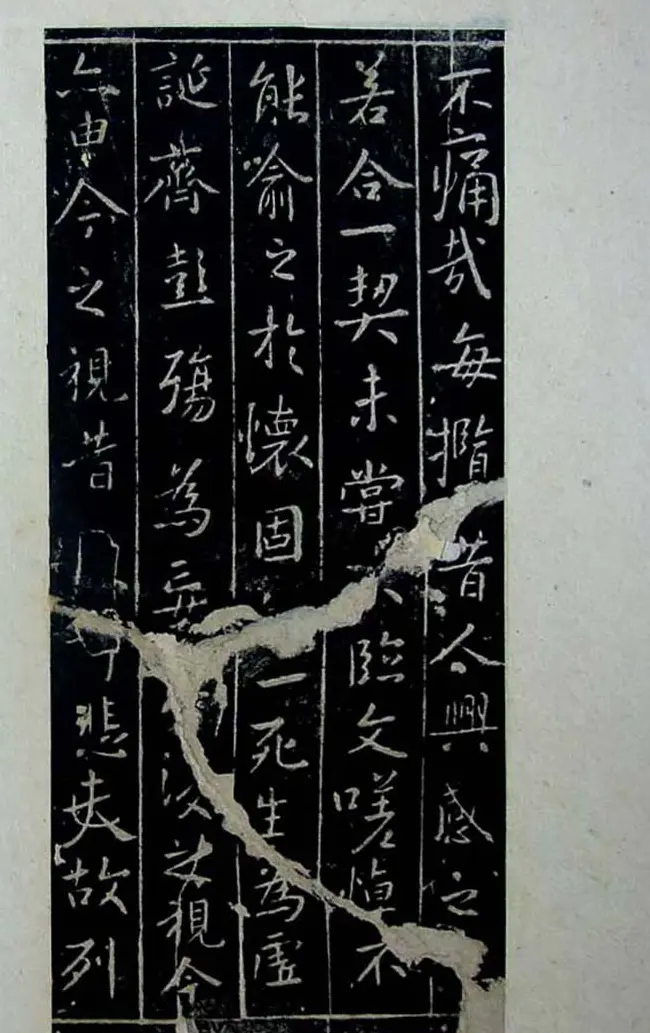 不痛哉每攬昔人興感之
若合一契未嘗不臨文嗟悼不
能喻之於懷固一死生為虛
誕齊彭殤為妄後之視今
亦由今之視昔悲夫故列